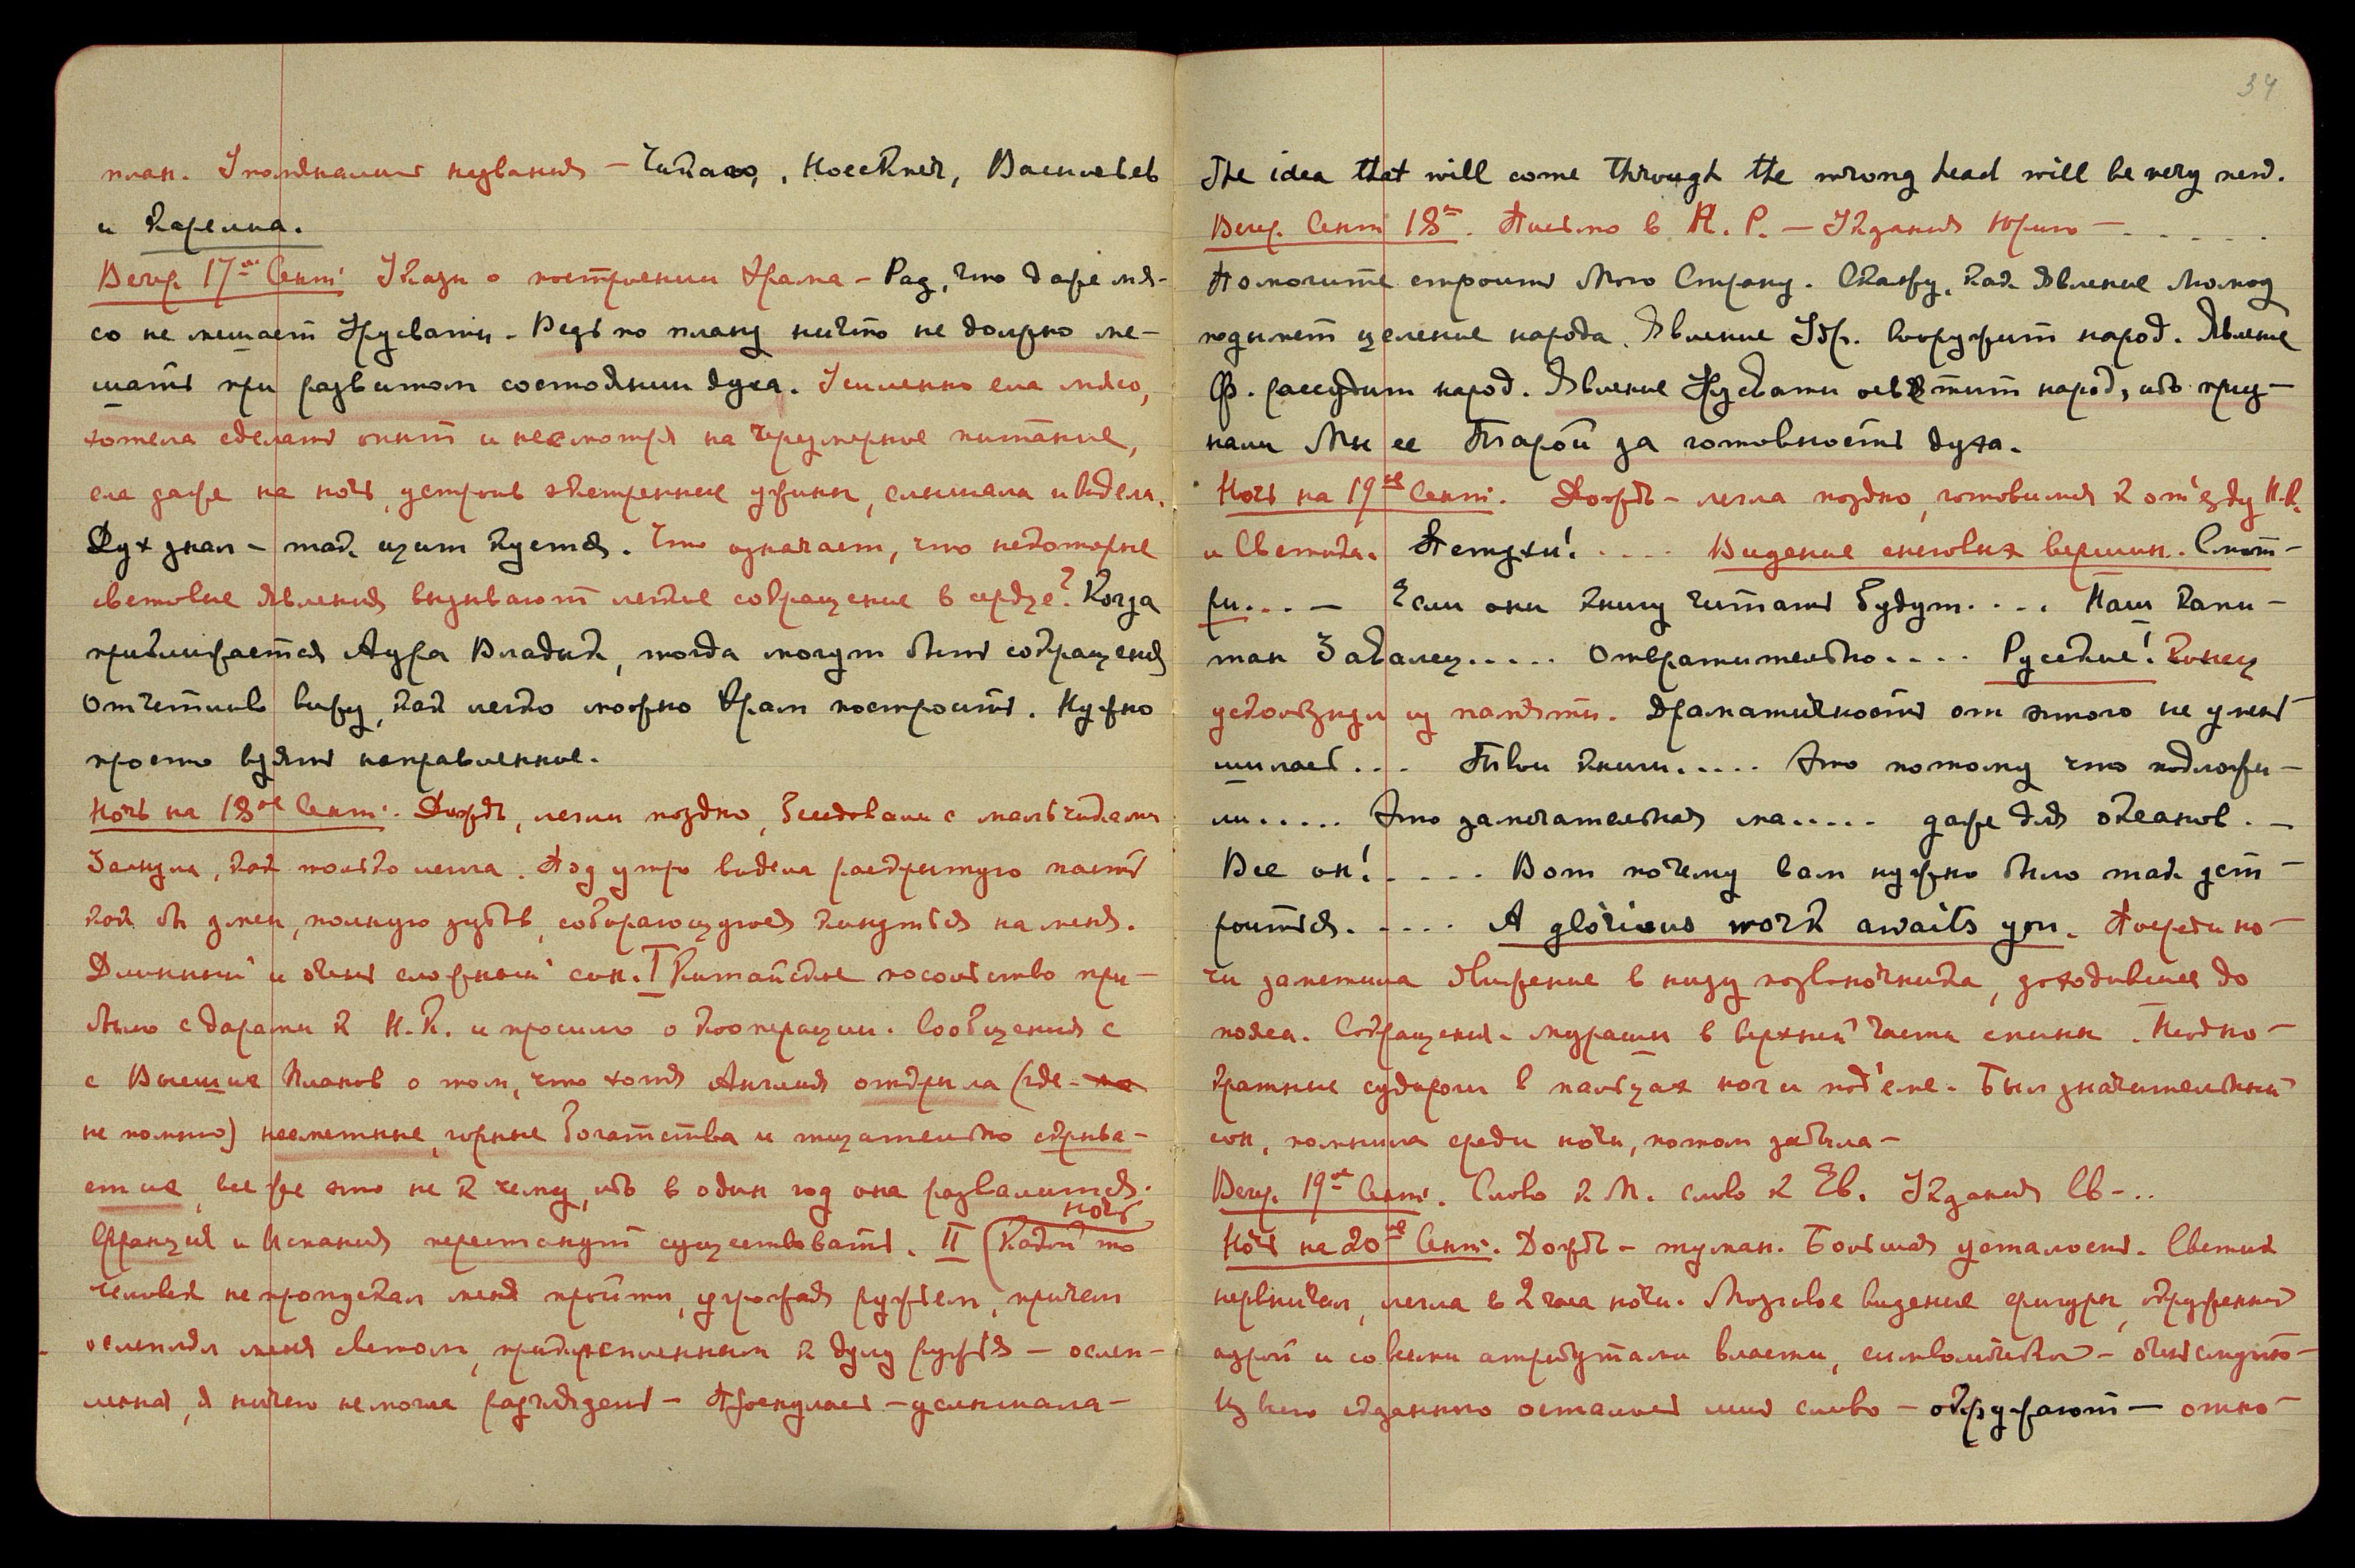 план. Упоминались названия — Чикаго, , Носскнег, Васильев
и Карелия.
Вечер 17ое Сент. Указы о построении Храма — Рад, что даже мя-
со не мешает Урусвати. Ведь по плану ничто не должно ме-
шать при развитом состоянии духа. Усиленно ела мясо,
хотела сделать опыт и несмотря на чрезмерное питание,
ела даже на ночь, устроив экстренные ужины, слышала и видела.
Дух знал — так щит куется. Что означает, что некоторые
световые явления вызывают легкие сокращение в сердце? Когда
приближается Аура Владык, тогда могут быть сокращения
Отчетливо вижу, как легко можно Храм построить. Нужно
просто взять направление.
Ночь на 18ое Сент. Дождь, легли поздно, беседовали с мальчиками
Заснула, как только легла. Под утро видела раскрытую пасть
как бы змеи, полную зубов, собирающуюся кинуться на меня.
Длинный и очень сложный сон. I Китайское посольство при-
было с дарами к Н.К. и просило о кооперации. Сообщения с
с Высших Планов о том, что хотя Англия открыла (где-
не помню) несметные, горные богатства и тщательно скрыва-
ет их, все же это не к чему, ибо в один год она развалится.
Франция и Испания перестанут существовать. II (Какой то
ночь
человек не пропускал меня пройти, угрожая ружьем, причем
ослеплял меня светом, прикрепленным к дулу ружья — ослеп-
ленная, я ничего не могла разглядеть — Проснулась — услышала —
34
The idea that will come through the wrong head will be very new.
Вечер. Сент 18ое. Письмо в Н. Р. — Указания Юрию — . . . . .
Помогите строить Мою Страну. Скажу, как явление Люмоу
поднимет целение народа. Явление Удр. вооружит народ. Явление
Ф. рассудит народ. Явление Урусвати осветит народ, ибо приз-
нали Мы ее Тарой за готовность духа.
Ночь на 19ое Сент. Дождь — легла поздно, готовились к от'езду Н.К.
и Светика. Петухи! . . . . Видение снеговых вершин. Смот-
ри. . . — Если они книгу читать будут. . . . Наш капи-
тан Завалец. . . . . Отвратительно. . . . Русские! Конец
ускользнул из памяти. Драматичность от этого не умень-
шилась . . . Твои книги. . . . . Это потому что положи-
ли. . . . . Это замечательная ма. . . . . даже для океанов. —
Все он! . . . . . Вот почему вам нужно было так уст-
роиться. . . . . A glorious work awaits you. Посреди но-
чи заметила движение в низу позвоночника, доходившее до
пояса. Сокращения, мураши в верхней части спины. Неодно-
кратные судороги в пальцах ног и под'еме. Был значительный
сон, помнила среди ночи, потом забыла —
Вечер. 19ое Сент. Слово к М. слово к Ев. Указания Св — ..
Ночь на 20ое Сент. Дождь — туман. Большая усталость. Светик
нервничал, легла в 2 часа ночи. Мозговое видение фигуры, окруженной
аурой и со всеми атрибутами власти, символически — очень смутно —
Из всего сказанного осталось лишь слово — окружают — отно-